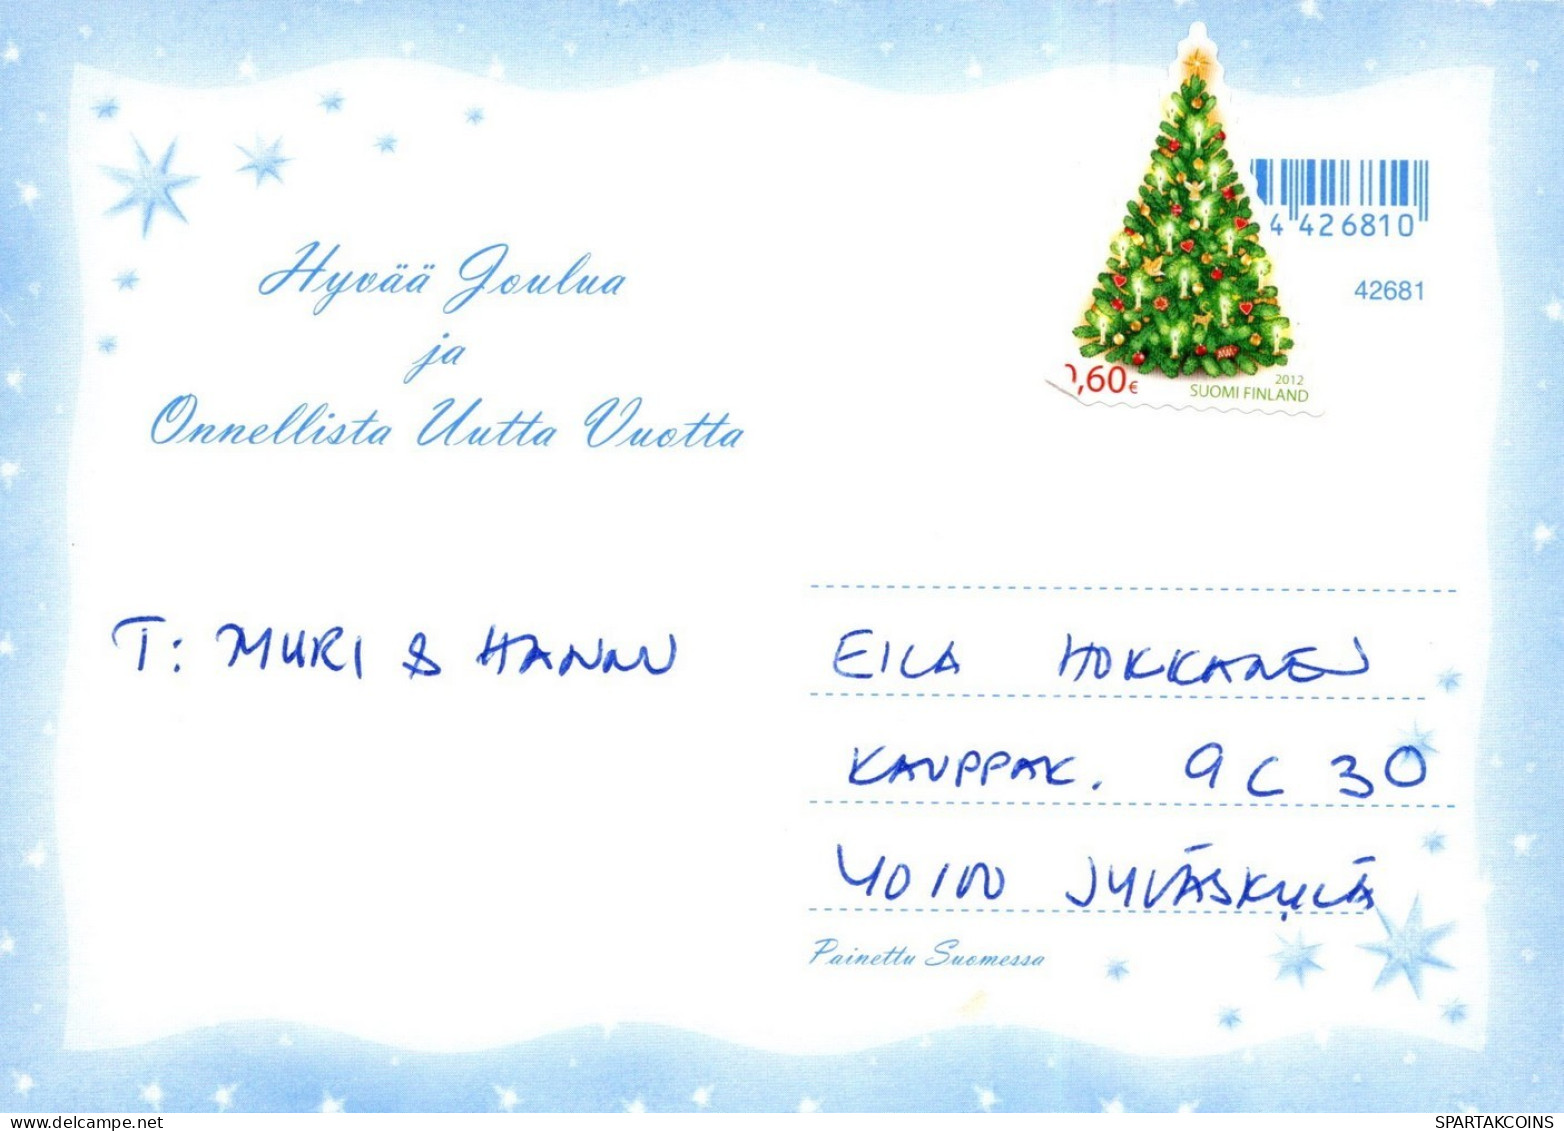 Hyvää Joulua
ja
Onnellista Uutta Vuotta
4 426810
42681
,60€
2012
SUOMI FINLAND
T: MURI & HANNU
EILA HOKKANEN
KAUPPAK. 9 C 30
40100 JYVÄSKYLÄ
Painettu Suomessa
SPARTAKCOINS